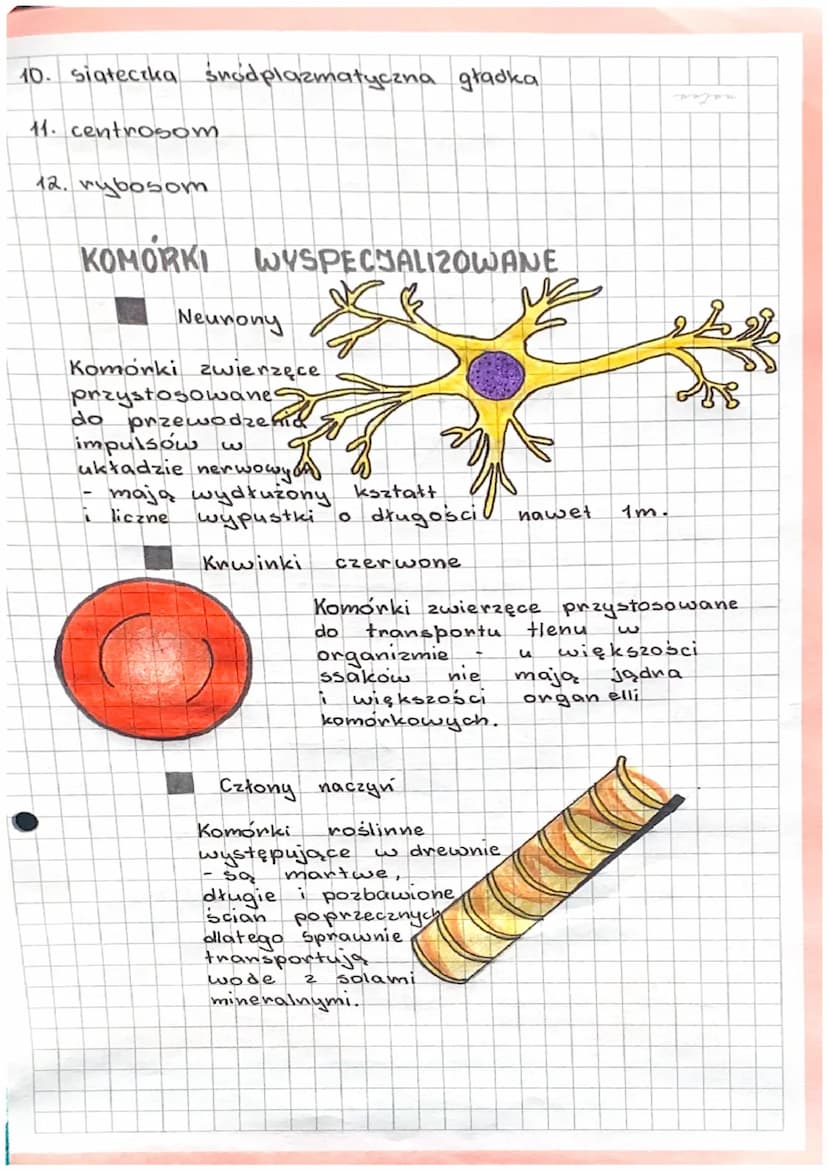 10. siateczka śródplazmatyczna gładka
11. centrosom
12. rybosom
KOMÓRKI WYSPECJALIZOWANE
Neurony
Komórki zwierzęce
przystosowane
do przewodzenia
impulsów w
układzie nerwowym
- mają wydłużony kształt
i liczne wypustki o długości nawet 1m.
Krwinki czerwone
Komórki zwierzęce przystosowane
do transportu tlenu w
organizmie - u większości
ssaków nie mają jądra
i większości organelli
komórkowych.
Człony naczyń
Komórki roślinne
występujące w drewnie
- są martwe,
długie i pozbawione
ścian poprzecznych
dlatego sprawnie
transportują
wodę z solami
mineralnymi.